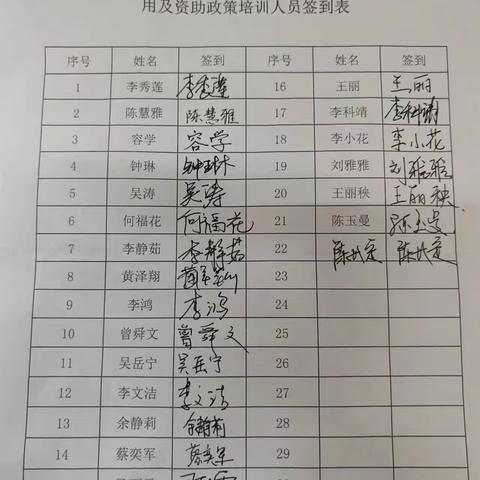 用及资助政策培训人员签到表
序号 姓名 签到 序号 姓名 签到
1 李秀莲 李秀莲 16 王丽 王丽
2 陈慧雅 陈慧雅 17 李科靖 李科靖
3 容学 容学 18 李小花 李小花
4 钟琳 钟琳 19 刘雅雅 刘雅雅
5 吴涛 吴涛 20 王丽秧 王丽秧
6 何福花 何福花 21 陈玉曼 陈玉曼
7 李静茹 李静茹 22
8 黄泽翔 23
9 李鸿 李鸿 24
10 曾舜文 曾舜文 25
11 吴岳宁 吴岳宁 26
12 李文洁 李文洁 27
13 余静莉 余静莉 28
14 蔡奕军 蔡奕军 29